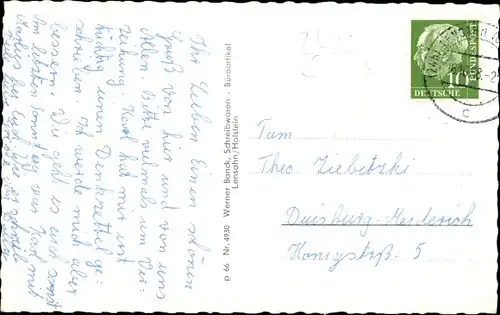 Ihr Lieben Einen schönen
Gruß von hier und von uns
Allen. Bitte vielmals um Ver-
zeihung Karl hat mir erst
tüchtig einen Denkzettel ge-
schrieben. Ich werde mich aber
bessern. Wie geht es euch sonst
Am letzten Sonntag war Karl mit
bei euch
p 66 Nr. 4930 Werner Banck, Schreibwaren - Büroartikel
Lensahn/Holstein
DEUTSCHE
BUNDESPOST
10
c
Fam
Theo Ziebetzki
Duisburg-Meiderich
Königstrß. 5